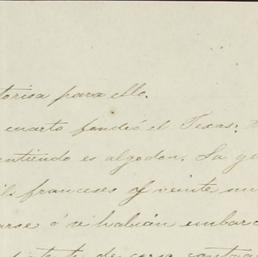 torisa para ello.
cuarto fondeó el Texas:
entiendo es algodon. La ge
franceses y veinte
arse ó si habian embarc
de